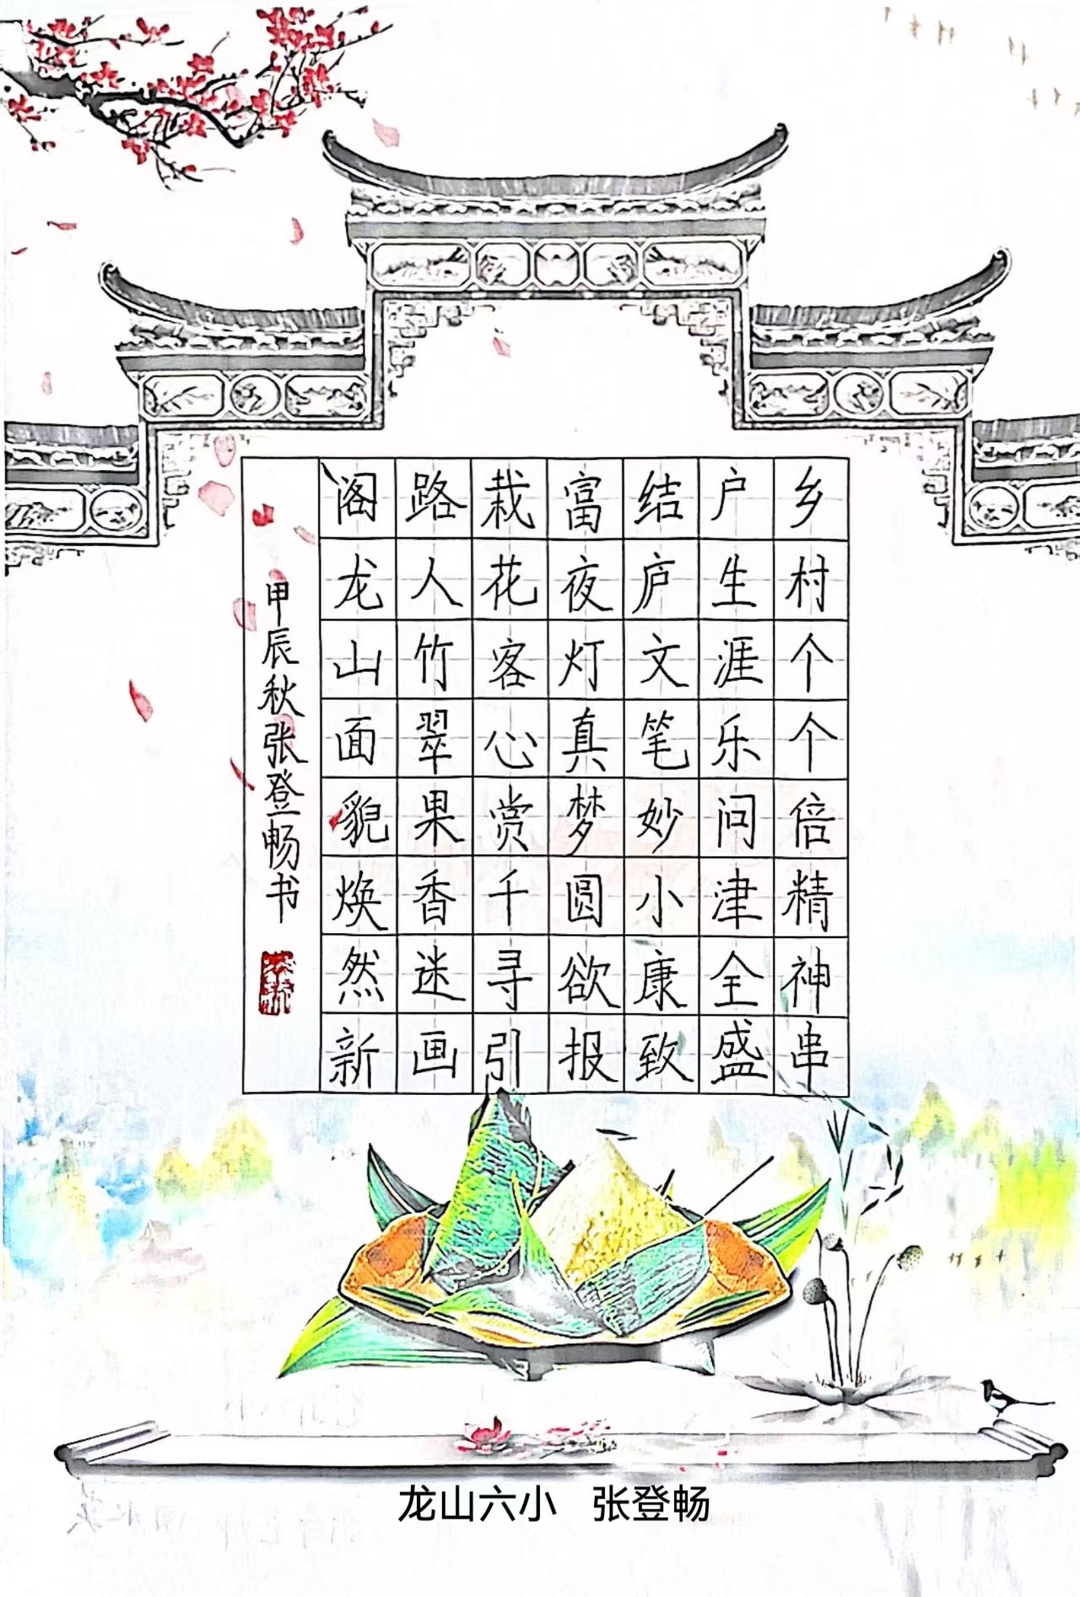 乡村个个倍精神串
户生涯乐问津全盛
结庐文笔妙小康致
富夜灯真梦圆欲报
栽花客心赏千寻引
路人竹翠果香迷画
阁龙山面貌焕然新
甲辰秋张登畅书
龙山六小 张登畅